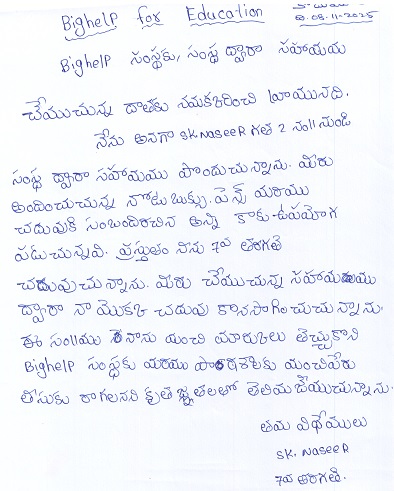 Bighelp for Education
తి. 08-11-2025
Bighelp సంస్థకు, సంస్థ ద్వారా సహాయము
చేయుచున్న దాతకు నమకరించి వ్రాయునది.
నేను అనగా SK NaseeR గత 2 సం॥ నుండి
సంస్థ ద్వారా సహాయము పొందుచున్నాను. మీరు
అందించుచున్న నోటుబుక్కు, పెన్స్ మరియు
చదువుకి సంబందించిన అన్ని నాకు ఉపయోగ
పడుచున్నవి. ప్రస్తుతం నేను 7వ తరగతి
చదువుచున్నాను. మీరు చేయుచున్న సహాయము
ద్వారా నా యొక్క చదువు కొనసాగించుచున్నాను.
ఈ సం॥ము నేను మంచి మార్కులు తెచ్చుకొని
Bighelp సంస్థకు మరియు పాఠశాలకు మంచిపేరు
తీసుకు రాగలనని కృతజ్ఞతలతో తెలియచేయుచున్నాను.
తమ విధేయులు
SK. NaseeR
7వ తరగతి.